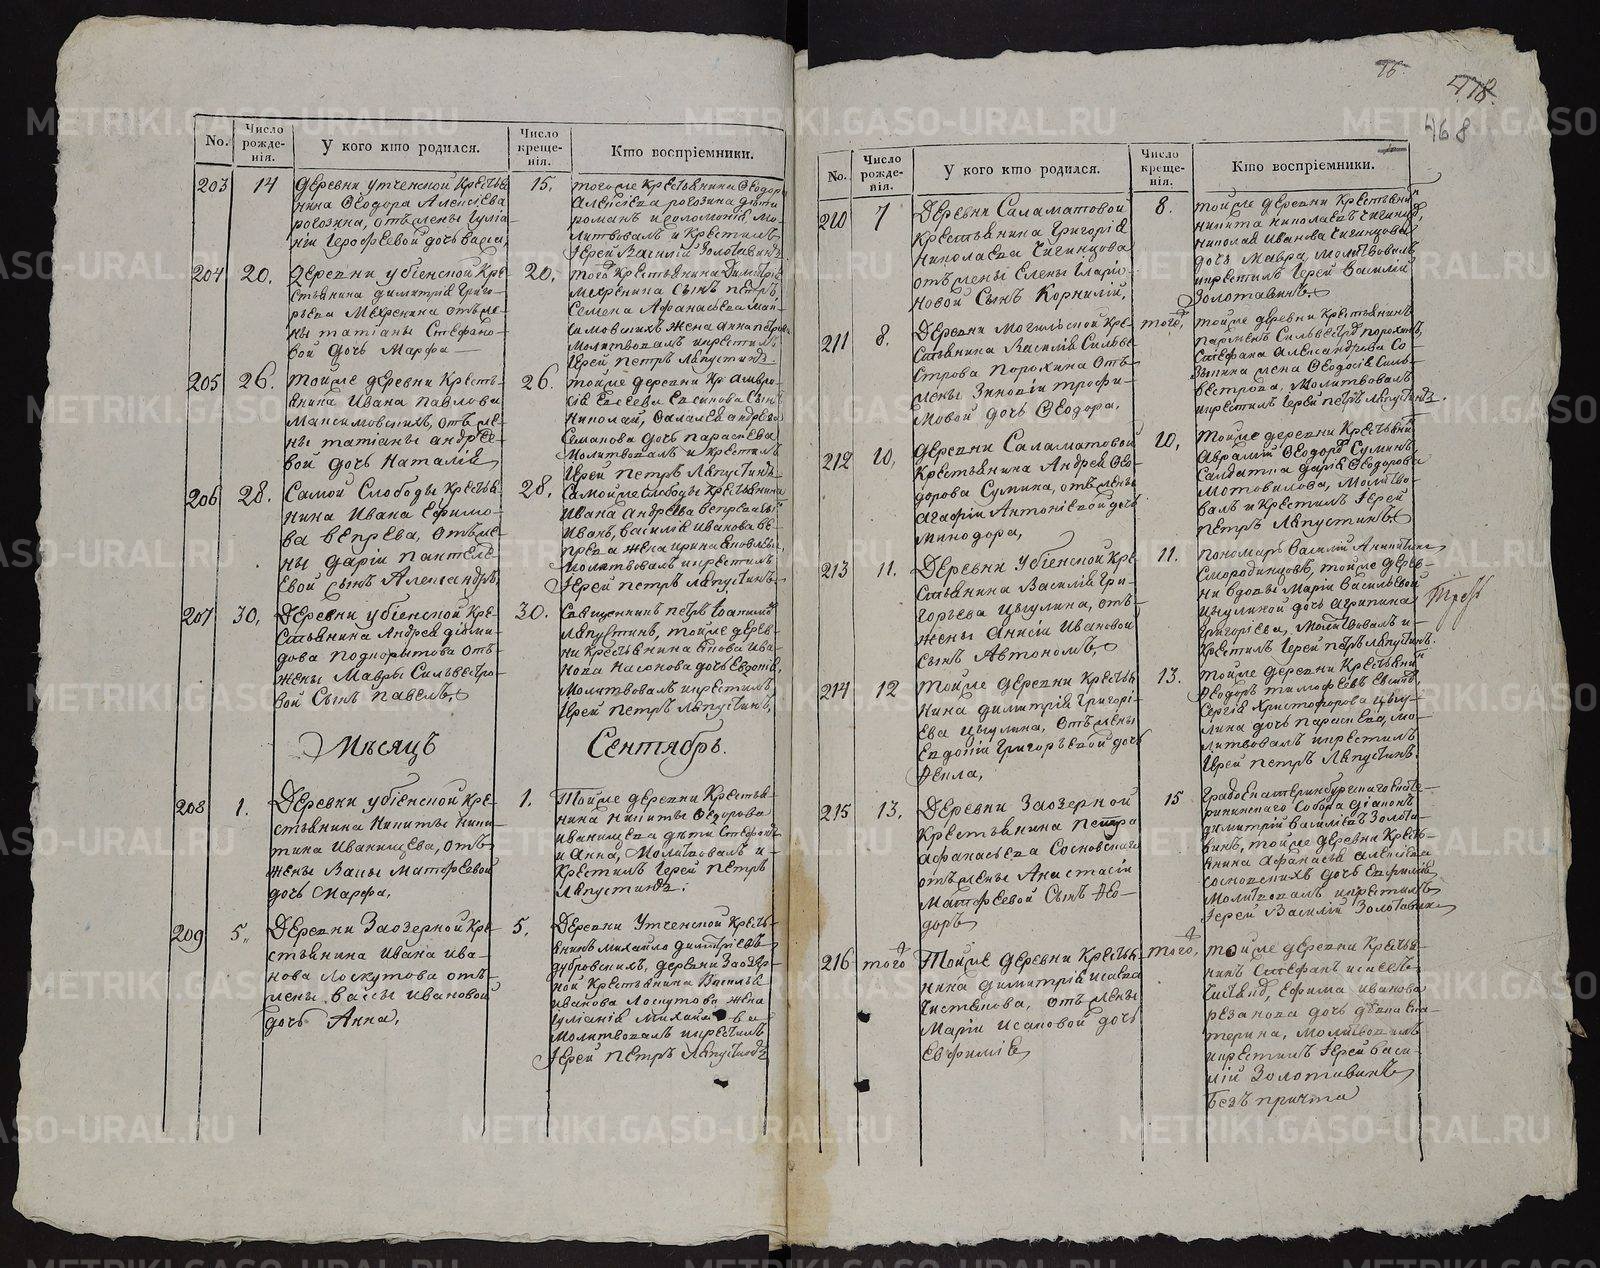 No.
Число рожде-нія.
У кого кто родился.
Число креще-нія.
Кто воспріемники.
203
14
Деревни Утченской Кресть-
нина Ѳеодора Алексіева
рогозина, отъ жены Іуліа-
ніи Ерофѣевой дочь васса,
15.
тогоже Крестьянина Ѳеодора
Алексіева рогозина дѣти
романъ и соломонія Мо-
литвовалъ и Крестилъ
Іерей Василій Золотавинъ
204
20.
Деревни убіенской Кре-
стьянина димитрія Григо-
рьева Мехренина отъ же-
ны татіаны Стефано-
вой дочь Марфа
20,
того Крестьянина Димитрія
Мехренина сынъ петръ,
Семена Афанасьева Мак-
симовскихъ жена анна петрова
Молитвовалъ икрестилъ
Іерей петръ Ляпустинъ.
205
26.
тойже деревни Кресть-
янина Ивана павлова
Максимовскихъ, отъ же-
ны татіаны андрее-
вой дочь Наталія
26.
тойже деревни Кр: амвро-
сія Евсеева сынъ
Николай, андреева
дочь параскева
Молитвовалъ и Крестилъ
Іерей петръ Ляпустинъ
206
28.
Самой Слободы Крестья-
нина Ивана Ефимо-
ва вепрева, отъ же-
ны даріи пантеле-
евой сынъ Александръ,
28.
Самойже Слободы Крестьянина
Ивана андреева вепрева сынъ
Иванъ, василія иванова ве-
прева жена ирина Яковлева,
Молитвовалъ икрестилъ
Іерей петръ Ляпустинъ
207
30,
Деревни убіенской Кре-
стьянина Андрея діоми-
дова подкорытова отъ
жены Мавры Сильвестро-
вой сынъ павелъ,
30.
Священникъ петръ Іоакимовъ
Ляпустинъ, тойже дерев-
ни Крестьянина Якова Ива-
нова насонова дочь Евдокія
Молитвовалъ икрестилъ
Іерей петръ Ляпустинъ,
Мѣсяцъ
Сентябрь.
208
1.
Деревни убіенской Кре-
стьянина Никиты Ники-
тина Иванищева, отъ
жены Вассы Матфеевой
дочь Марфа,
1.
Тойже деревни Крестья-
нина никиты Ѳедорова
иванищева дѣти Стефанъ
и Анна, Молитвовалъ и
Крестилъ Іерей петръ
Ляпустинъ:
209
5,,
Деревни Заозерной Кре-
стьянина Ивана Ива-
нова Лоскутова отъ
жены вассы ивановой
дочь Анна,
5,
Деревни Утченской Кресть-
янинъ михайло димтріевъ
дубровскихъ, деревни Заозер-
ной Крестьянина Василья
иванова Лоскутова жена
іуліанія
Молитвовалъ икрестилъ
Іерей петръ Ляпустинъ
16.
478.
468
No.
Число рожде-нія.
У кого кто родился.
Число креще-нія.
Кто воспріемники.
210
7
Деревни Саламатовой
Крестьянина григорія
Николаева Чигинцова
отъ жены Елены Иларіо-
новой сынъ Корнилій,
8.
тойже деревни Крестьянинъ
никита николаевъ чигинцовъ,
николая Иванова чигинцова
дочь Мавра, молитвовалъ
икрестилъ Іерей василій
Золотавинъ
211
8.
Деревни Могильской Кре-
стьянина Василія Сильве-
строва порохина отъ
жены Зиновіи трофи-
мовой дочь Ѳеодора,
того,
тойже деревни Крестьянинъ
парменъ Сильвестровъ порохинъ,
Стефана Александрова
жена Ѳеодосія Силь-
вестрова, молитвовалъ
икрестилъ Іерей петръ Ляпустинъ.
212
10,
Деревни Саламатовой
Крестьянина Андрея Ѳео-
дорова Сумина, отъ жены
агафіи Антоніевой дочь
минодора,
10,
тойже деревни Крестьянинъ
Авраамій Ѳеодоровъ Суминъ,
Салдатка дарія Ѳеодорова
мотовилова, молитво-
валъ и Крестилъ Іерей
петръ Ляпустинъ
213
11.
Деревни Убіенской Кре-
стьянина Василія Гри-
горьева цыулина, отъ
жены Анисіи Ивановой
сынъ Автономъ,
11.
пономарь Василій Аникитинъ
Смородинцовъ, тойже дерев-
ни вдовы Маріи Васильевой
цыулиной дочь агрипина
григоріева, молитвовалъ и
крестилъ Іерей петръ Ляпустинъ.
214
12
тойже деревни Крестья-
нина димитрія Григорі-
ева цыулина, отъ жены
Евдокіи григорьевой дочь
Ѳекла,
13.
тойже деревни Крестьянинъ
Ѳеодоръ тимофеевъ
Сергія Христофорова цыу-
лина дочь параскева, мо-
литвовалъ икрестилъ
Іерей петръ Ляпустинъ.
215
13,
Деревни Заозерной
Крестьянина петра
афанасьева Сосновскаго
отъ жены Анастасіи
Матфеевой сынъ Ѳео-
доръ
15
градоекатеринбургскаго Екате-
рининскаго Собора діаконъ
димитрій василіевъ Золота-
винъ, тойже деревни Кресть-
янина Афанасья алексіева
сосновскихъ дочь Евфимія
Молитвовалъ икрестилъ
Іерей Василій Золотавинъ
216
того
Тойже деревни Крестья-
нина димитрія исаева
Чистякова, отъ жены
Маріи Исаковой дочь
Евфимія
того,
тойже деревни Крестья-
нинъ Стефанъ исаевъ
Ефима иванова
резанова дочь дѣвка ека-
терина, молитвовалъ
икрестилъ Іерей васи-
лій Золотавинъ
безъ причта